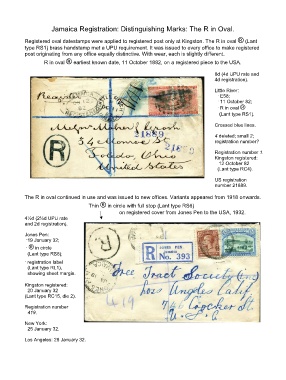 Jamaica Registration: Distinguishing Marks: The R in Oval.
Registered oval datestamps were applied to registered post only at Kingston. The R in oval ® (Lant
type RS1) brass handstamp met a UPU requirement. It was issued to every office to make registered
post originating from any office equally distinctive. With wear, each is slightly different.
R in oval ® earliest known date, 11 October 1882, on a registered piece to the USA,
8d (4d UPU rate and
4d registration).
Little River:
E58;
11 October 82;
R in oval ®
(Lant type RS1).
Crossed blue lines.
4 deleted; small 2;
registration number?
Registration number 1.
Kingston registered:
12 October 82
(Lant type RC4).
US registration
number 21889.
Register
21889
21889
R
34 Monroe St
Toledo, Ohio
United States
The R in oval continued in use and was issued to new offices. Variants appeared from 1916 onwards.
Thin ® in circle with full stop (Lant type RS6)
on registered cover from Jones Pen to the USA, 1932.
4½d (2½d UPU rate
and 2d registration).
Jones Pen:
19 January 32;
® in circle
(Lant type RS6);
registration label
(Lant type RL1),
showing albeit margin.
Kingston registered:
20 January 32
(Lant type RC15, die 2).
Registration number
419.
New York:
25 January 32.
Los Angeles: 29 January 32.
R
JONES PEN.
R
No. 393
Free Tract Society (Inc)
Los Angeles Calif
746 Crocker St.
U.S.A
419